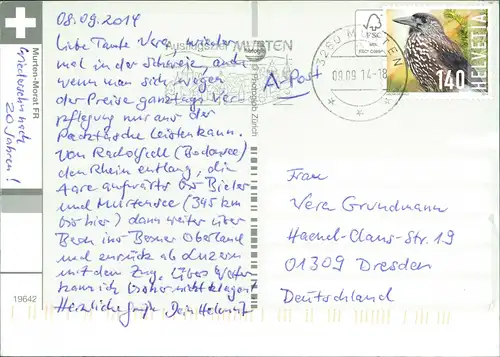 08.09.2014
Liebe Tante Vera, wieder
mal in der Schweiz, auch
wenn man sich wegen
der Preise ganztags Ver-
pflegung nur aus der
Packtasche leisten kann.
Von Radolfzell (Bodensee)
den Rhein entlang, die
Aare aufwärts bis Bieler
und Murtensee (345 km
bis hier) dann weiter über
Bern ins Berner Oberland
und zurück ab Luzern
mit dem Zug. Übers Wetter
kann ich bisher nicht klagen!
Herzliche Grüße Dein Helmut
Murten-Morat FR
Wiedersehn nach
20 Jahren!
19642
Ausflugsziel MURTEN
© Photoglob Zürich
A-Post
3280 MURTEN
09.09.14-18
FSC
HELVETIA
140
Frau
Vera Grundmann
Haenel-Claus-Str. 19
01309 Dresden
Deutschland